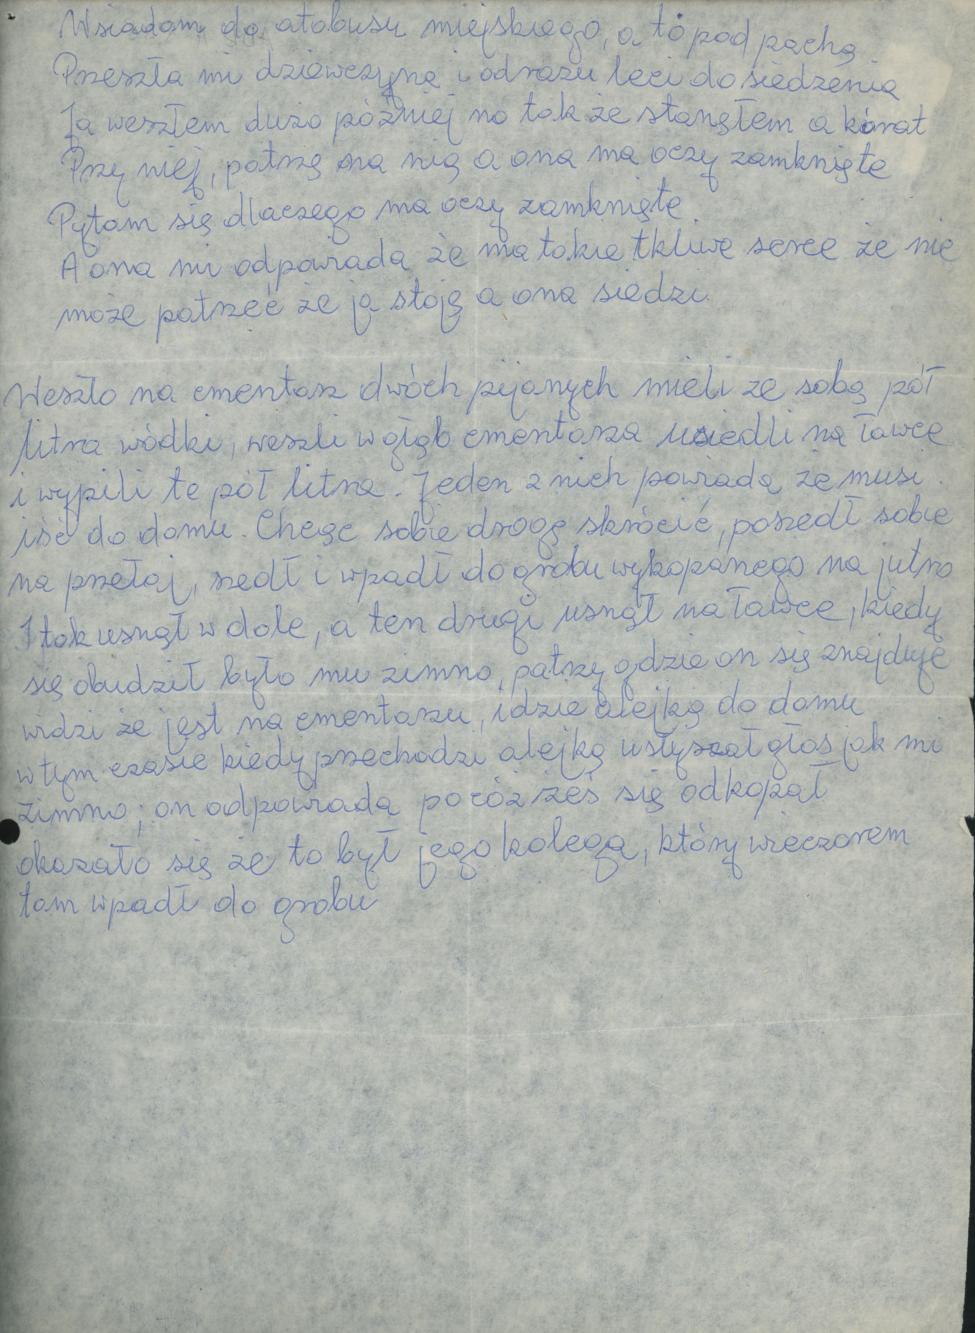 Wsiadam do atobusu miejskiego, a tó pod pachą
Przeszła mi dziewczyna i odrazu leci do siedzenia
Ja weszłem dużo później no tak że stanąłem a kórat
Przy niej, patrzę na nią a ona ma oczy zamknięte
Pytam się dlaczego ma oczy zamknięte.
A ona mi odpowiada że ma takie tkliwe serce że nie
może patrzeć że ja stoję a ona siedzi.
Weszło na cmentarz dwóch pijanych mieli ze sobą pół
litra wódki, weszli w głąb cmentarza usiedli na ławce
i wypili te pół litra. Jeden z nich powiada że musi
iść do domu. Chcąc sobie drogę skrócić, poszedł sobie
na przełaj, szedł i wpadł do grobu wykopanego na jutro
I tak usnął w dole, a ten drugi usnął na ławce, kiedy
się obudził było mu zimno, patrzy gdzie on się znajduje
widzi że jest na cmentarzu, idzie alejką do domu
w tym czasie kiedy przechodzi alejką usłyszał głos jak mi
zimno; on odpowiada pocóżżeś się odkopał
okazało się że to był jego kolega, który wieczorem
tam wpadł do grobu